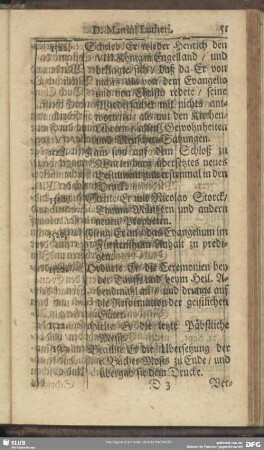 D. Martini Lutheri. 51
1522. Schrieb Er wieder Henrich den
VIII. König in Engelland / und
beklagte sich / daß da Er von
nichts als von dem Evangelio
und von Christo redete / seine
Wiedersacher mit nichts ant-
worteten / als mit den Kirchen-
Lehrern / alten Gewohnheiten
und Menschen-Satzungen.
Kam sein auf dem Schloß zu
Wartenburg übersetztes neues
Testament zum erstenmal in den
Druck.
Nicolao Storck /
Thoma Müntzern und andern
neuen Propheten.
Fieng Er an das Evangelium im
Fürstenthum Anhalt zu predi-
gen.
Ordnete Er die Ceremonien bey
der Tauffe und beym Heil. A-
bendmahl an / und drange auf
die Reformation der geistlichen
Güter.
hielte Er die letzte Päbstliche
Messe.
Brachte Er die Übersetzung der
Bücher Mosis zu Ende / und
übergab sie dem Drucke.
D 3 Ver-
SLUB
DFG